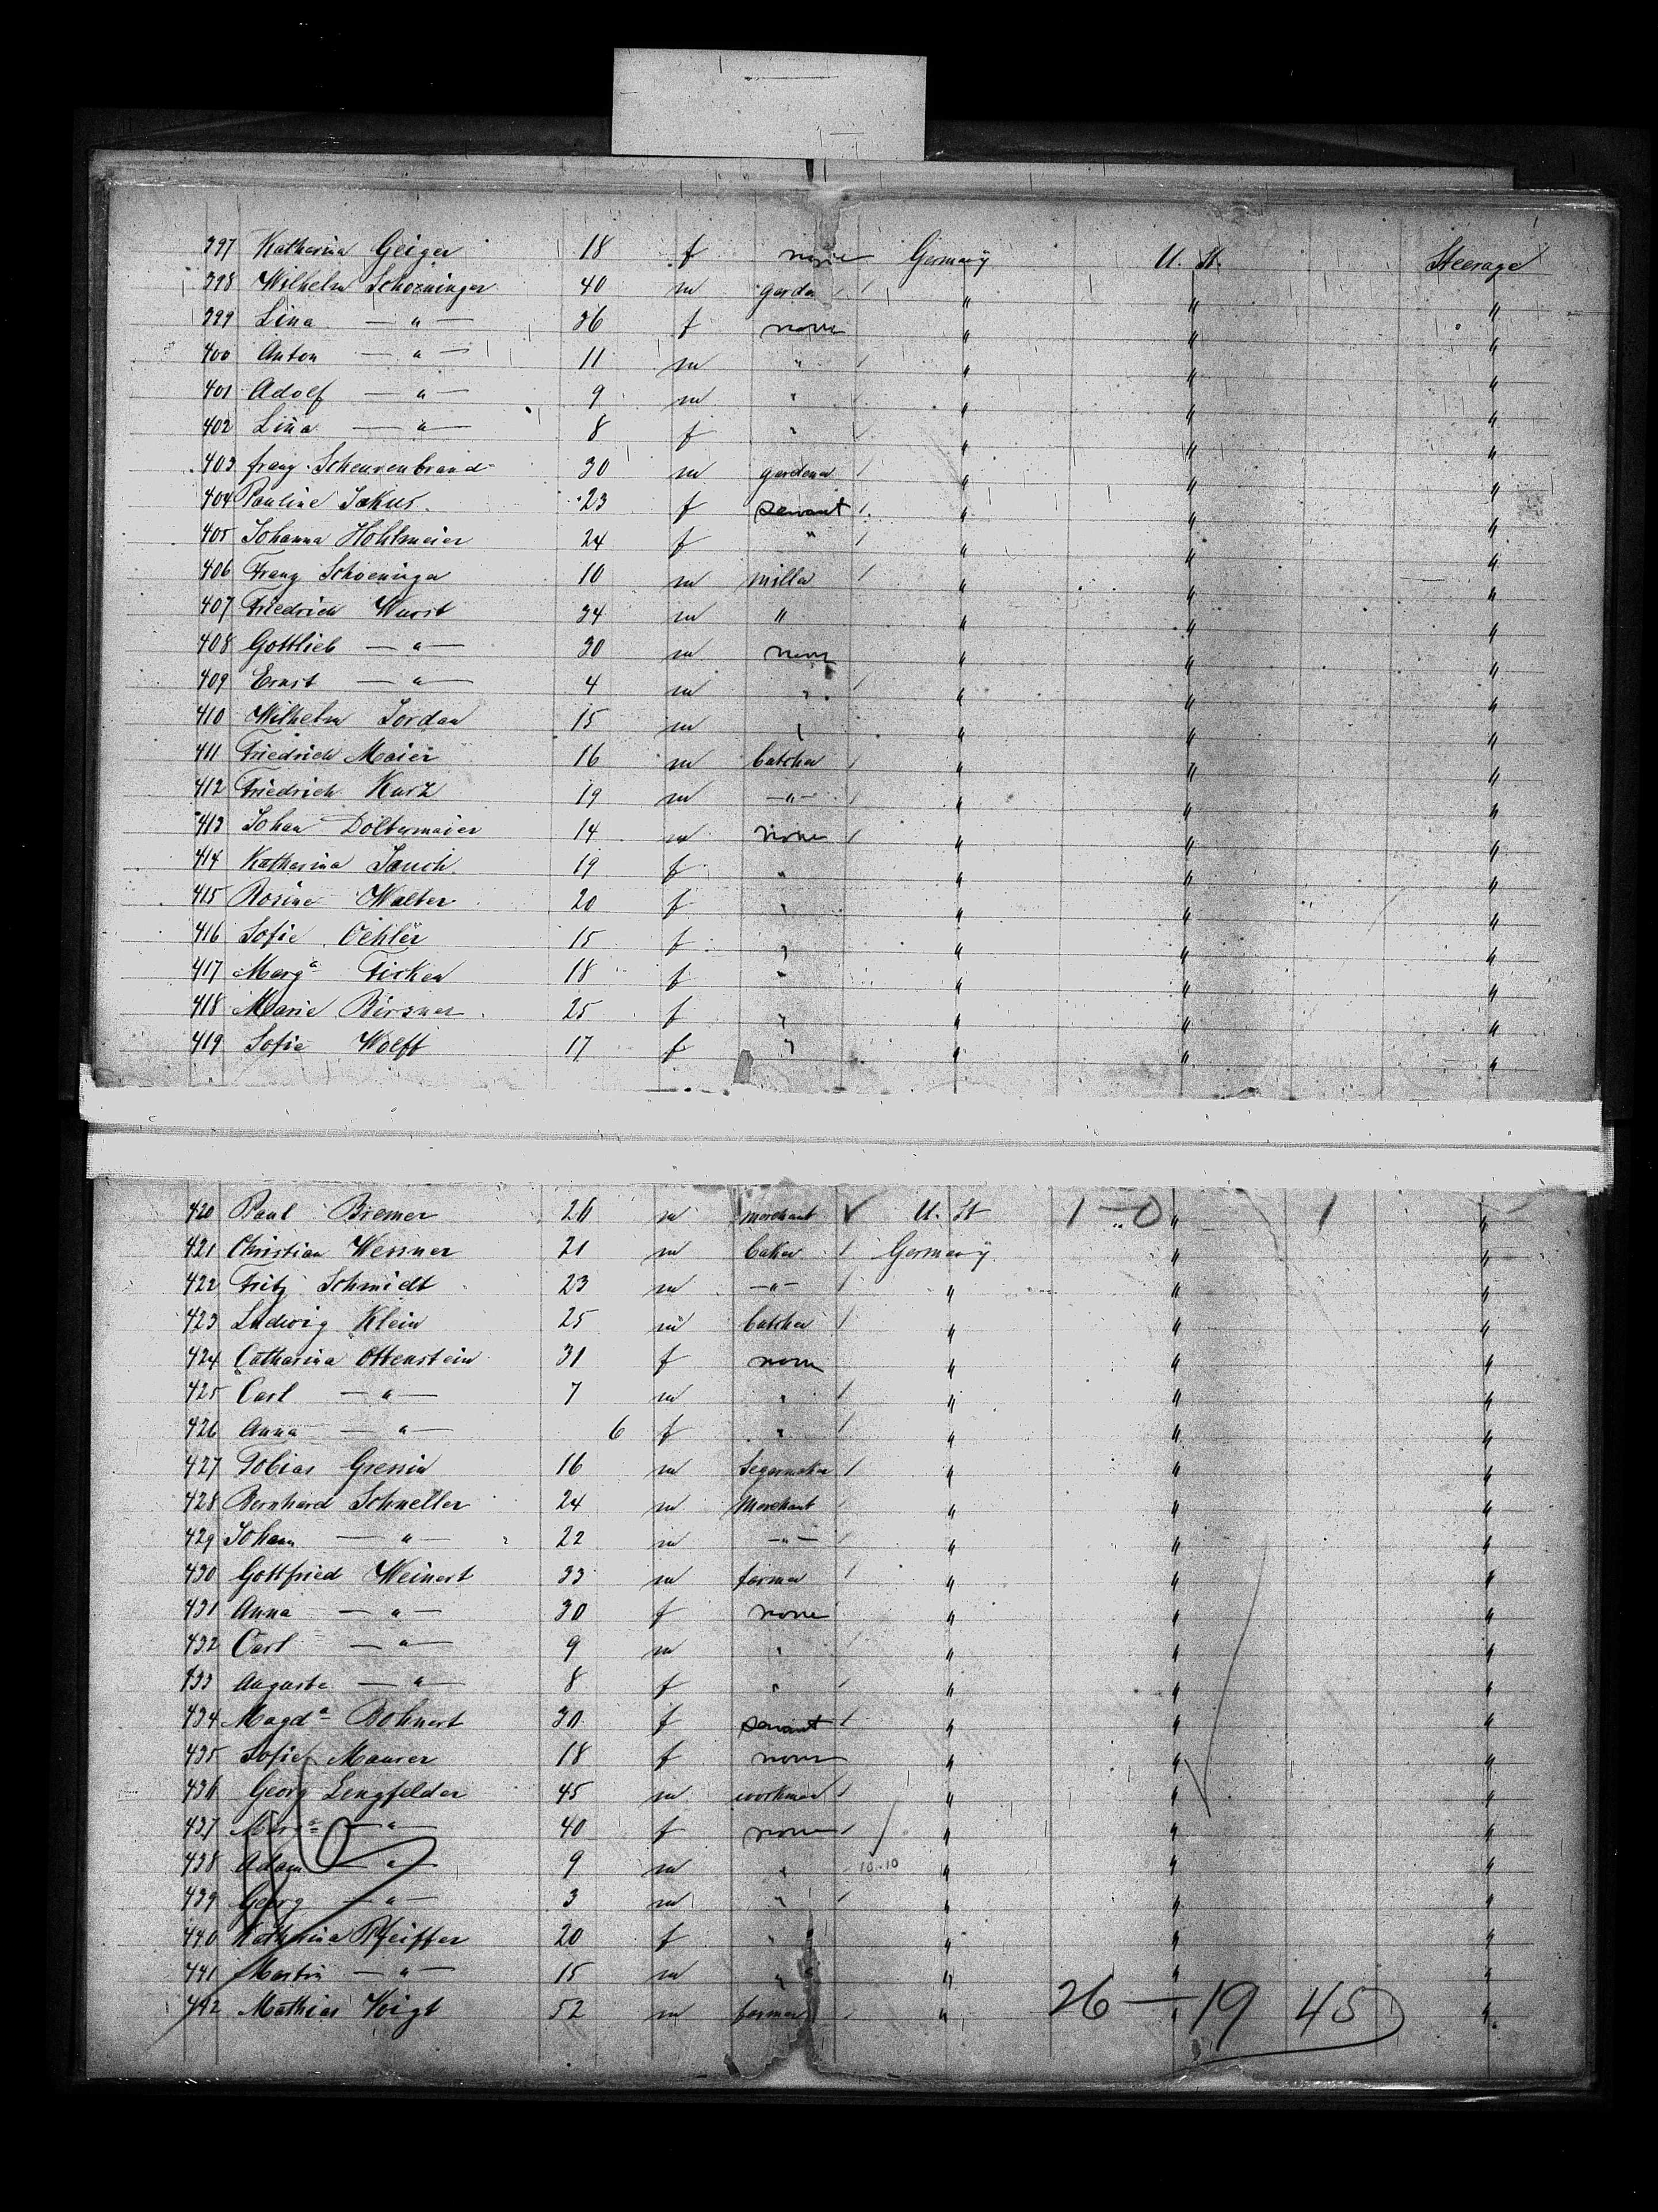 397 Katharina Geiger 18 f none Germany U. St. Steerage
398 Wilhelm Schoeninger 40 m garde " " "
399 Lina — " — 36 f none " " "
400 Anton — " — 11 m " " " "
401 Adolf — " — 9 m " " " "
402 Lina — " — 8 f " " " "
403 franz Scheurenbrand 30 m gardener " " "
404 Pauline Jakus 23 f servant " " "
405 Johanna Hohlmeier 24 f " " " "
406 Franz Schoeninger 10 m miller " " "
407 Friedrich Wurst 34 m " " " "
408 Gottlieb — " — 30 m none " " "
409 Ernst — " — 4 m " " " "
410 Wilhelm Jordan 15 m " " " "
411 Friedrich Maier 16 m butcher " " "
412 Friedrich Kurz 19 m — " — " " "
413 Johan Doltermaier 14 m none " " "
414 Katharina Jauch 19 f " " " "
415 Rosine Walter 20 f " " " "
416 Sofie Oehler 15 f " " " "
417 Marg.a 18 f " " " "
418 Marie Birsner 25 f " " " "
419 Sofie Wolff 17 f " " " "
420 Paul Biemer 26 m merchant U. St 1 – 0 " 1 "
421 Christian Wessner 21 m baker Germany " "
422 Fritz Schmidt 23 m — " — " " "
423 Ludwig Klein 25 m butcher " " "
424 Catharina Ottenstein 31 f none " " "
425 Carl — " — 7 m " " " "
426 Anna — " — 6 f " " " "
427 Tobias 16 m Segarmaker " " "
428 Bernhard Schneller 24 m Merchant " " "
429 Johann — " — 22 m — " — " " "
430 Gottfried Weinert 33 m farmer " " "
431 Anna — " — 30 f none " " "
432 Carl — " — 9 m " " " "
433 Auguste — " — 8 f " " " "
434 Magd.a Bohnert 30 f servant " " "
435 Sofie Maurer 18 f none " " "
436 Georg Lengfelder 45 m workman " " "
437 Marg.a — " — 40 f none " " "
438 Adam — " — 9 m " 10-10 " " "
439 Georg — " — 3 m " " " "
440 Katharina Pfeiffer 20 f " " " "
441 Martin — " — 15 m " " " "
442 Mathias Voigt 52 m farmer " 26 — 19 45 "